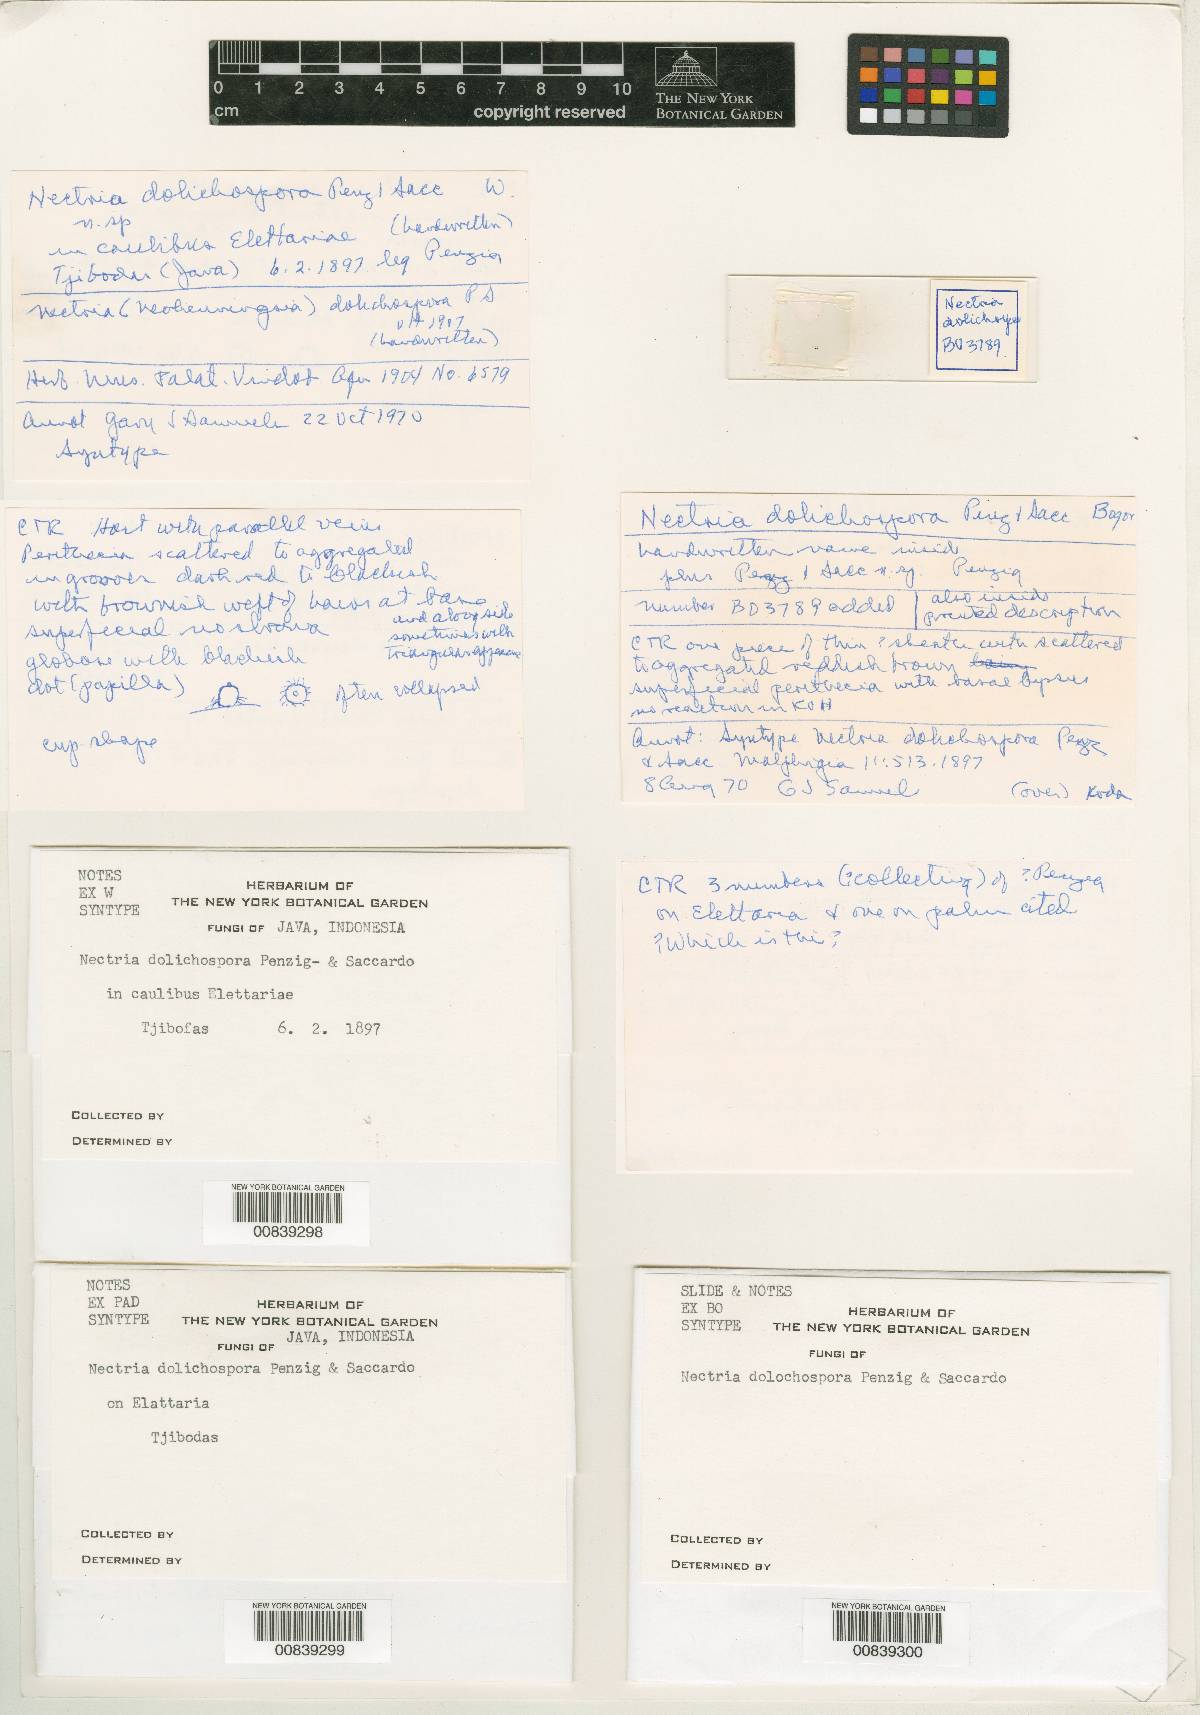 0 1 2 3 4 5 6 7 8 9 10
cm
copyright reserved
THE NEW YORK
BOTANICAL GARDEN
Nectria dolichospora Penz & Sacc W.
n. sp (handwritten)
in caulibus Elettariae
Tjibodas (Java) 6.2.1897 leg Penzig
Nectria (Neohenningsia) dolichospora P S
1907
(handwritten)
Herb. Mus. Palat. Vindob 1904 No. 6579
Annot Gary J Samuels 22 Oct 1970
Syntype
Nectria
dolichospo
BO 3789
CTR Host with parallel veins
Perithecia scattered to aggregated
in grooves dark red to blackish
with brownish weft of hairs at base
and along side
superficial no stroma
sometimes with
triangular appearance
globose with blackish
dot (papilla) often collapsed
cup shape
Nectria dolichospora Penz & Sacc Bogor
handwritten name inside
plus Penz & Sacc n. sp. Penzig
number BO 3789 added also inside
printed description
CTR one piece of thin ? sheath with scattered
to aggregated reddish brown
superficial perithecia with basal byssus
no reaction in KOH
Annot: Syntype Nectria dolichospora Penz
& Sacc Malphigia 11:513.1897
8 Aug 70 G J Samuels (over)
CTR 3 numbers (?collecting) of ?Penzig
on Elettaria & one on palm cited
? Which is this?
NOTES
EX W
SYNTYPE
HERBARIUM OF
THE NEW YORK BOTANICAL GARDEN
FUNGI OF JAVA, INDONESIA
Nectria dolichospora Penzig- & Saccardo
in caulibus Elettariae
Tjibofas 6. 2. 1897
COLLECTED BY
DETERMINED BY
NEW YORK BOTANICAL GARDEN
00839298
NOTES
EX PAD
SYNTYPE
HERBARIUM OF
THE NEW YORK BOTANICAL GARDEN
FUNGI OF JAVA, INDONESIA
Nectria dolichospora Penzig & Saccardo
on Elattaria
Tjibodas
COLLECTED BY
DETERMINED BY
NEW YORK BOTANICAL GARDEN
00839299
SLIDE & NOTES
EX BO
SYNTYPE
HERBARIUM OF
THE NEW YORK BOTANICAL GARDEN
FUNGI OF
Nectria dolochospora Penzig & Saccardo
COLLECTED BY
DETERMINED BY
NEW YORK BOTANICAL GARDEN
00839300